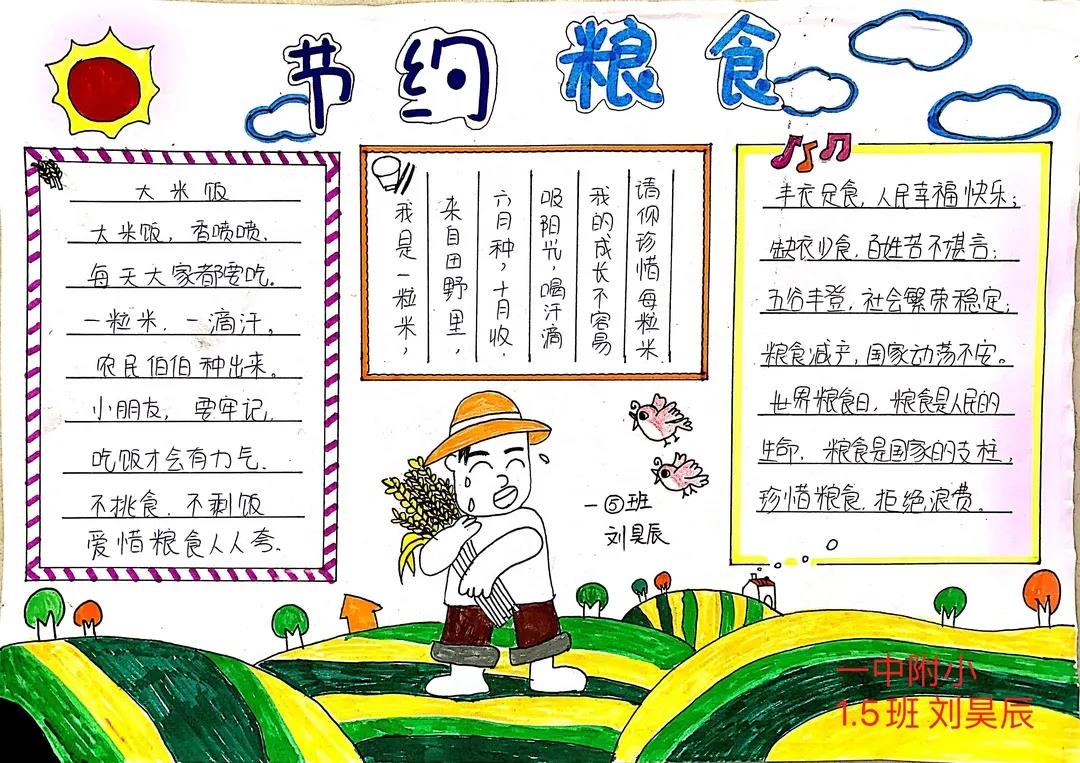 节约粮食
大米饭
大米饭，香喷喷.
每天大家都要吃.
一粒米.一滴汗，
农民伯伯种出来。
小朋友，要牢记.
吃饭才会有力气.
不挑食.不剩饭
爱惜粮食人人夸.
我是一粒米，
来自田野里，
六月种，十月收.
吸阳光，喝汗滴
我的成长不容易
请你珍惜每粒米
丰衣足食，人民幸福快乐；
缺衣少食，百姓苦不堪言；
五谷丰登，社会繁荣稳定；
粮食减产，国家动荡不安。
世界粮食日，粮食是人民的
生命，粮食是国家的支柱，
珍惜粮食，拒绝浪费。
一⑤班
刘昊辰
一中附小
1.5班 刘昊辰